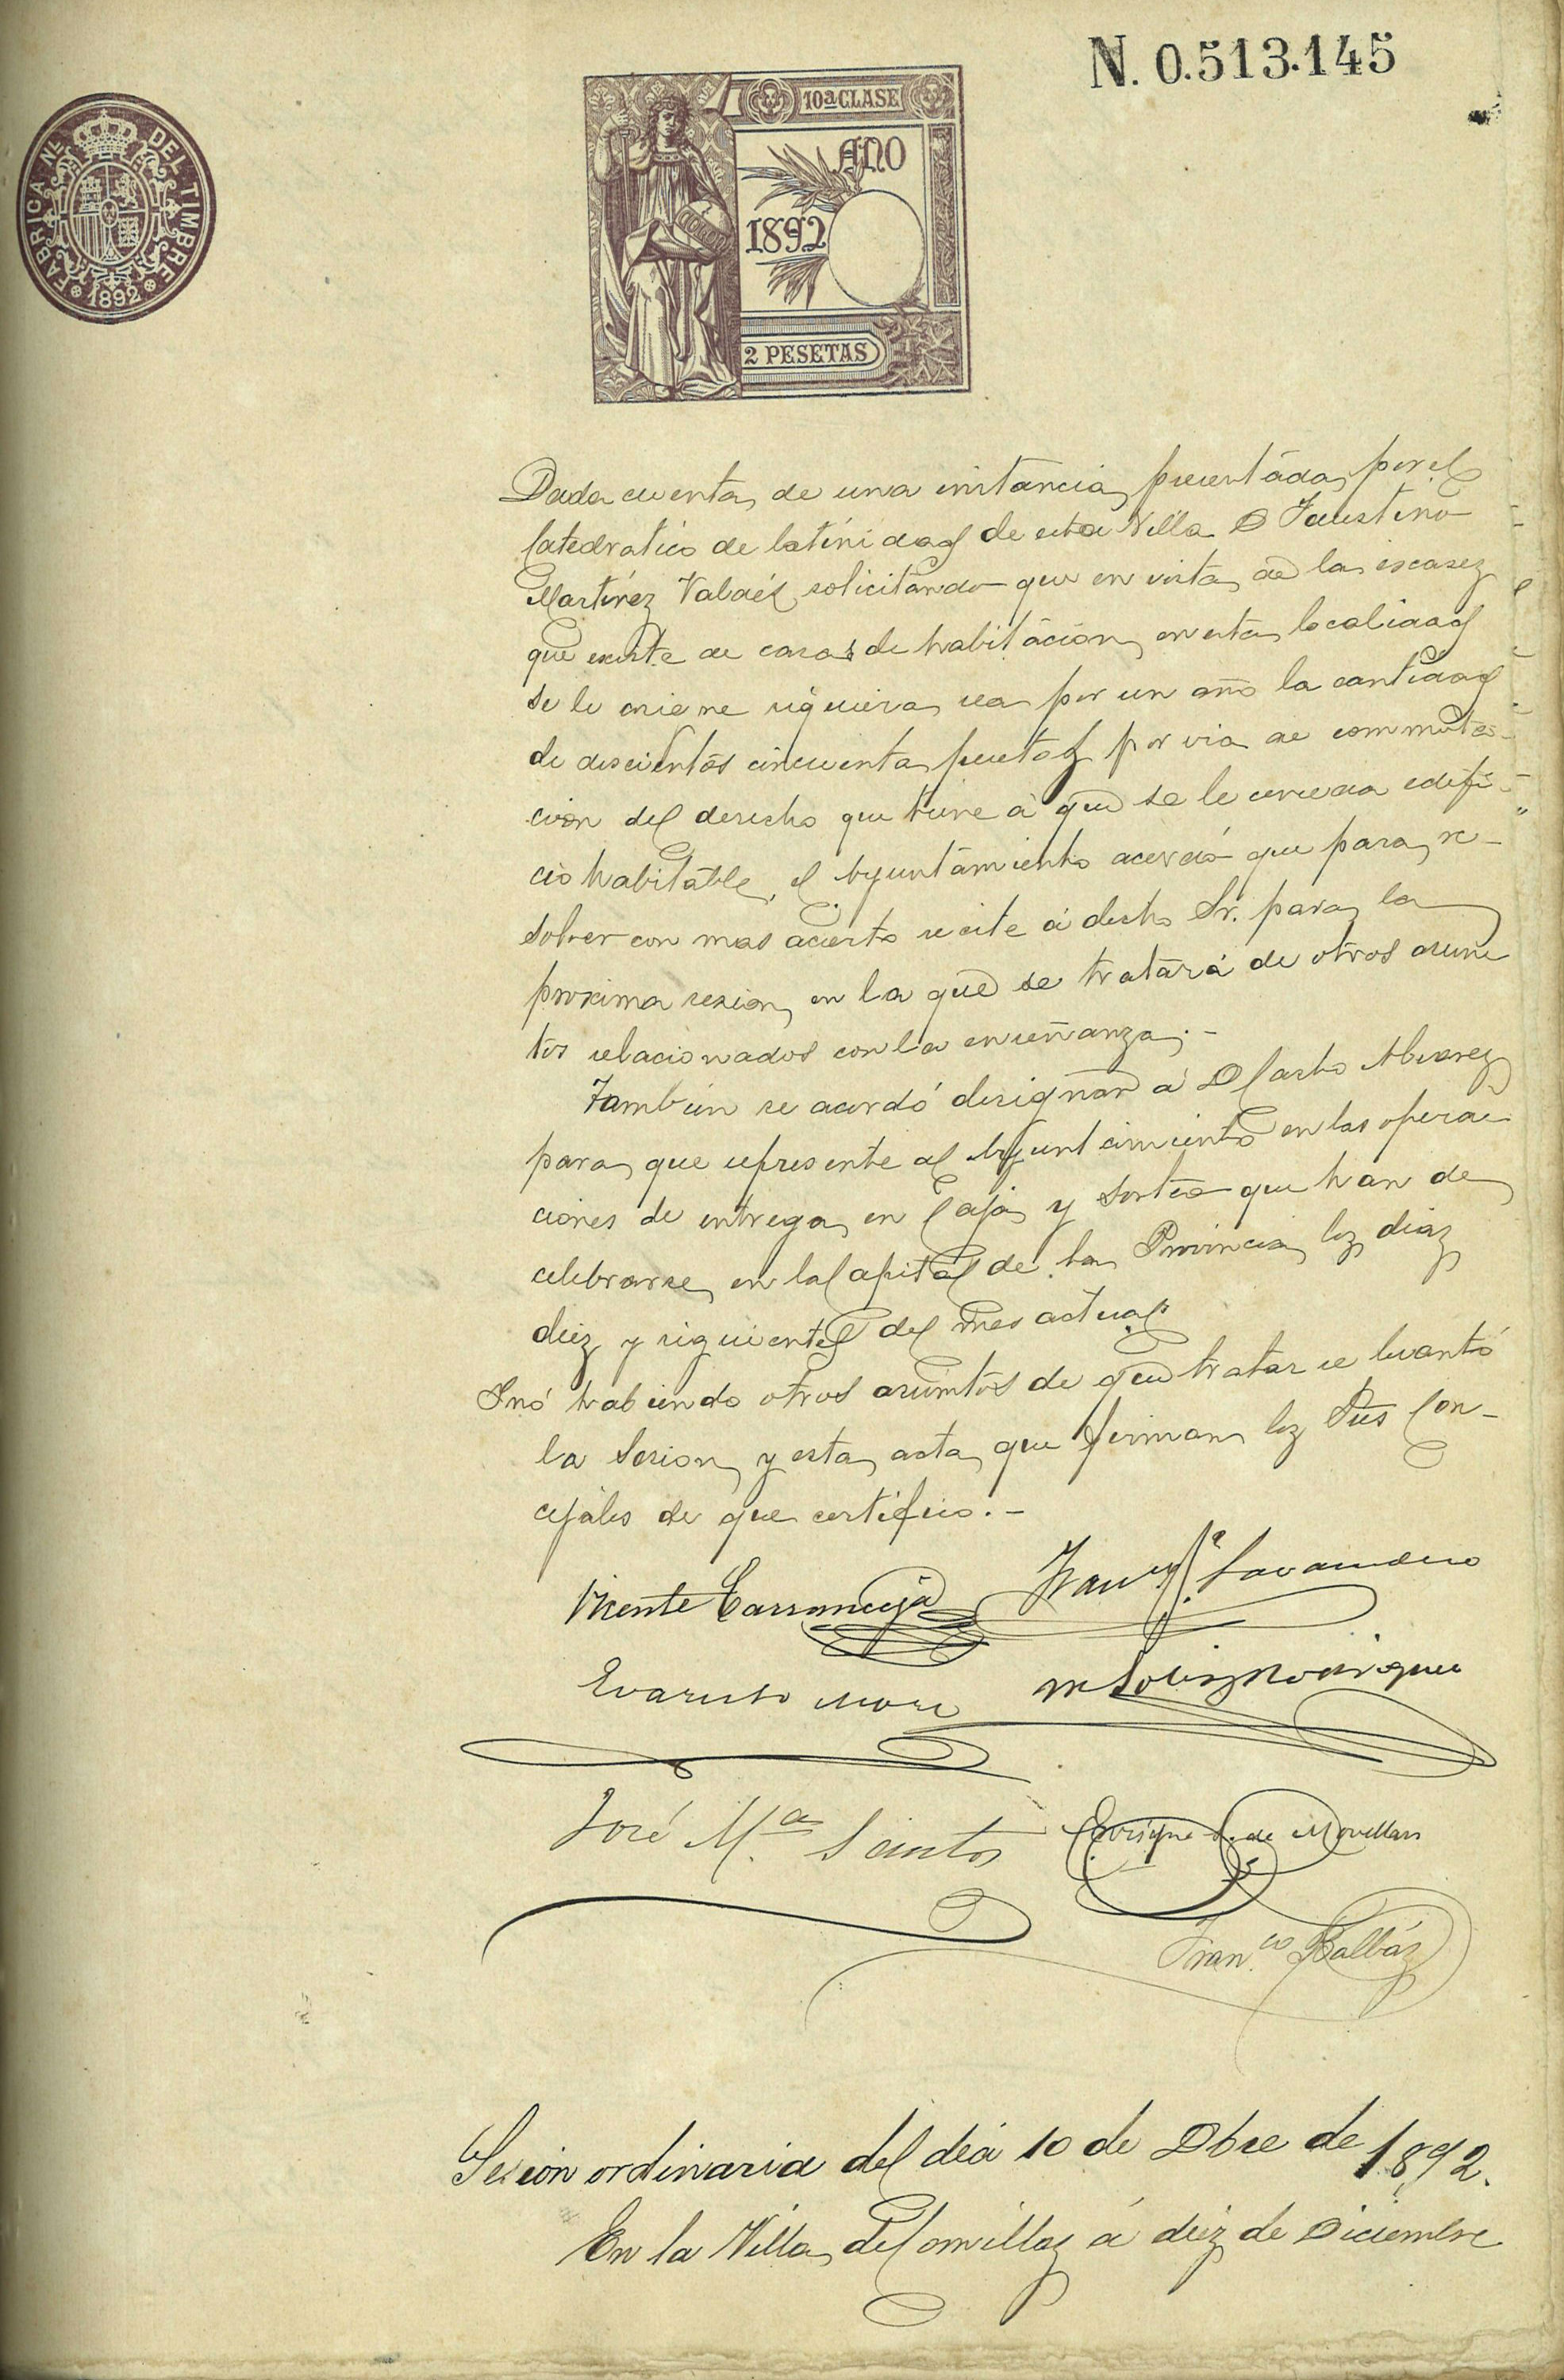 N. 0.513.145
FABRICA NL. DEL TIMBRE
1892
10ª CLASE
AÑO
1892
2 PESETAS
Dada cuenta de una instancia presentada por el
Catedratico de latinidad de esta Villa D Faustino
Martinez Valdés solicitando que en vista de la escasez
que existe de casas de habitacion en esta localidad
se le asigne siquiera sea por un año la cantidad
de doscientos cincuenta pesetas por via de conmuta-
cion del derecho que tiene á que se le conceda edifi-
cio habitable, el Ayuntamiento acordó que para re-
solver con mas acierto se cite á dicho Sr. para la
proxima sesion, en la que se tratará de otros asun
tos relacionados con la enseñanza.-
Tambien se acordó designar á D Casto Alvarez
para que represente al Ayuntamiento en las opera-
ciones de entrega en Caja y sorteo que han de
celebrarse en la Capital de la Provincia los dias
diez y siguientes del mes actual.
Y no habiendo otros asuntos de que tratar se levantó
la sesion y esta acta que firman los Sres Con-
cejales de que certifico.-
Vicente Carranceja
Lavandero
Evaristo More
M Solis Rodriguez
José M.ª Santos
Enrique S. de Movellan
Fran.co Balbás
Sesion ordinaria del dia 10 de Dbre de 1892.
En la Villa de Comillas á diez de Diciembre